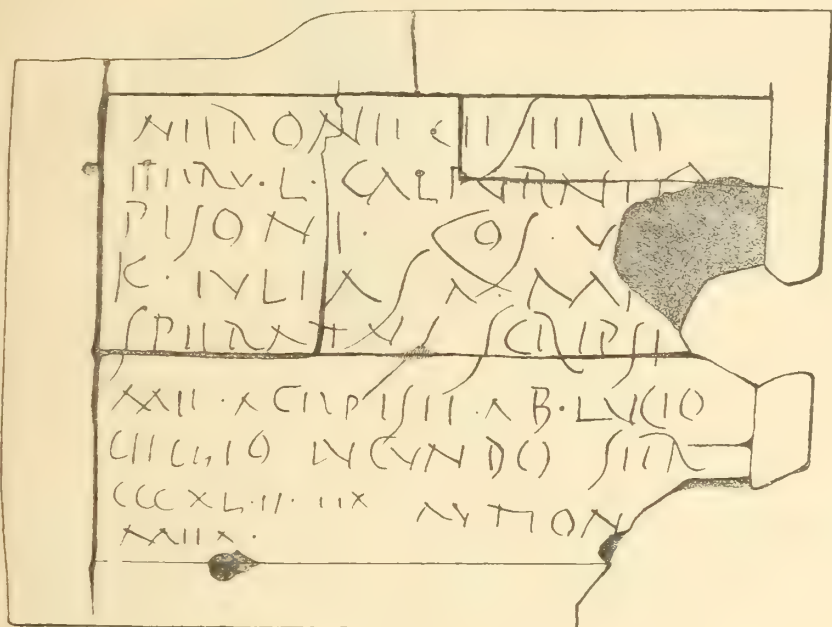 NIIRONII CIISARII
ITIIRV·L·CALPVRNIO
PISONI·COS·V
K·IVLIAS
SPIIRATVS SCRIPSI
MII·ACIIPISII·AB·LVCIO
CIICILIO IVCVNDO SIIR
CCCXL·II·IIX AVTION
MIIA·